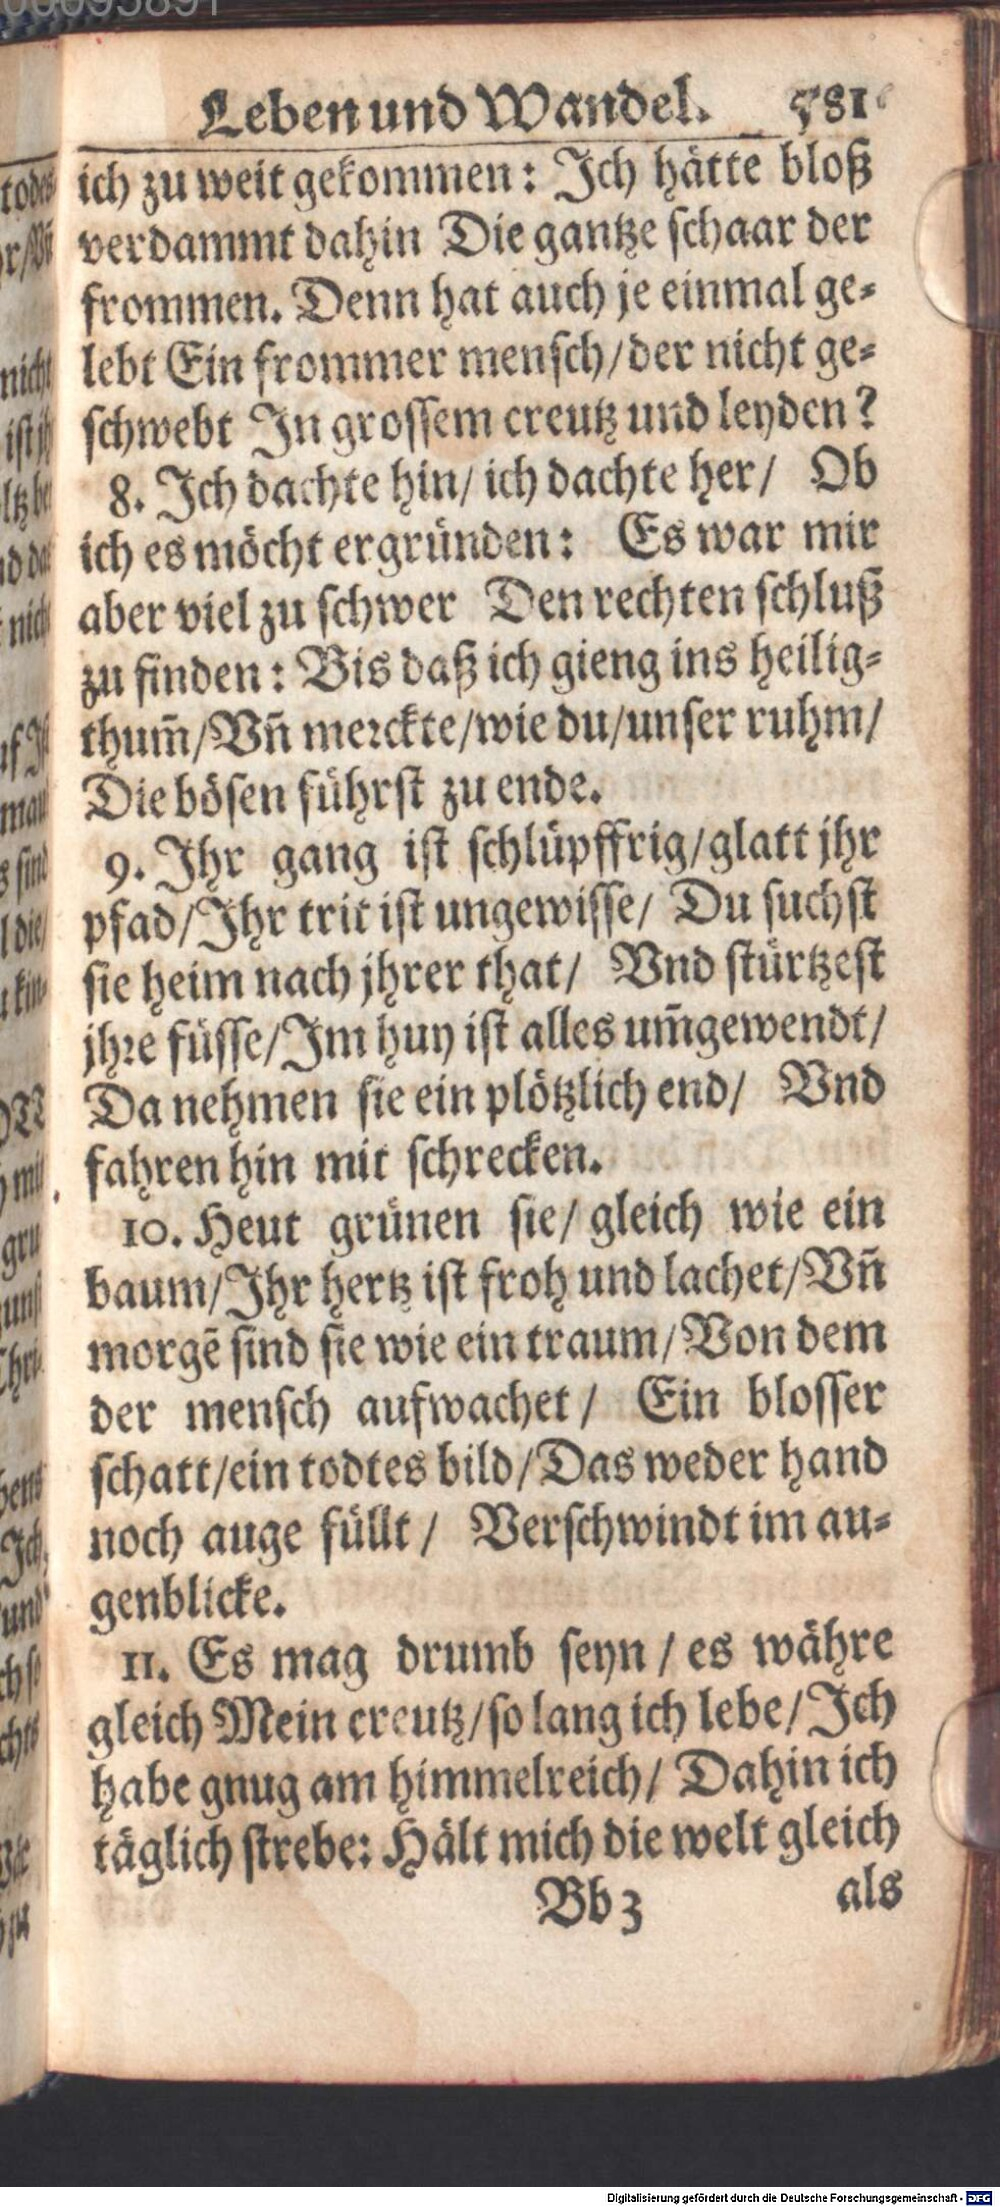 Leben und Wandel. 581
ich zu weit gekommen: Ich hätte bloß
verdammt dahin Die gantze schaar der
frommen. Denn hat auch je einmal ge-
lebt Ein frommer mensch/der nicht ge-
schwebt In grossem creutz und leyden?
8. Ich dachte hin/ ich dachte her/ Ob
ich es möcht ergründen: Es war mir
aber viel zu schwer Den rechten schluß
zu finden: Bis daß ich gieng ins heilig-
thum̃/Vñ merckte/wie du/unser ruhm/
Die bösen führst zu ende.
9. Ihr gang ist schlüpffrig/glatt jhr
pfad/Ihr trit ist ungewisse/ Du suchst
sie heim nach jhrer that/ Vnd stürtzest
jhre füsse/Im huy ist alles um̃gewendt/
Da nehmen sie ein plötzlich end/ Vnd
fahren hin mit schrecken.
10. Heut grünen sie/ gleich wie ein
baum/Ihr hertz ist froh und lachet/Vñ
morgẽ sind sie wie ein traum/Von dem
der mensch aufwachet/ Ein blosser
schatt/ein todtes bild/Das weder hand
noch auge füllt/ Verschwindt im au-
genblicke.
11. Es mag drumb seyn/ es währe
gleich Mein creutz/so lang ich lebe/Ich
habe gnug am himmelreich/ Dahin ich
täglich strebe: Hält mich die welt gleich
Bb 3 als
Digitalisierung gefördert durch die Deutsche Forschungsgemeinschaft - DFG